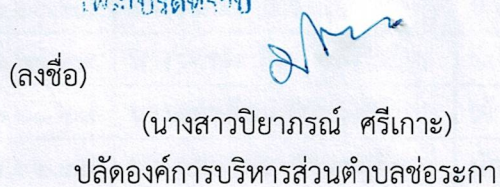 (ลงชื่อ)
(นางสาวปิยาภรณ์ ศรีเกาะ)
ปลัดองค์การบริหารส่วนตำบลช่อระกา